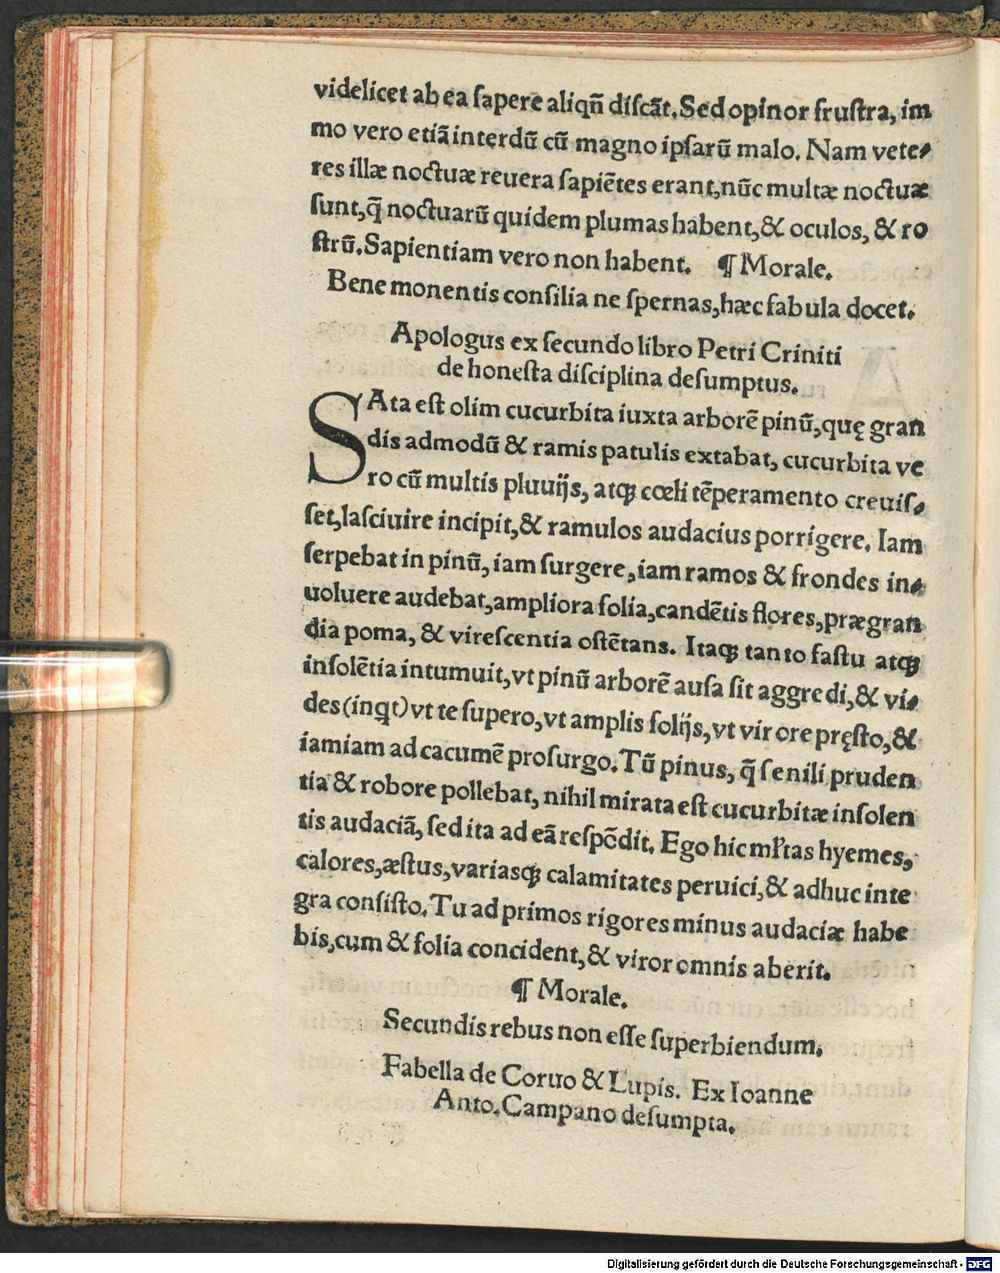 videlicet ab ea ſapere aliqñ diſcãt. Sed opinor fruſtra, im
mo vero etiã interdũ cũ magno ipſarũ malo. Nam vete⸗
res illæ noctuæ reuera ſapiẽtes erant, nũc multæ noctuæ
ſunt, q̃ noctuarũ quidem plumas habent, & oculos, & ro
ſtrũ. Sapientiam vero non habent. ¶ Morale.
Bene monentis conſilia ne ſpernas, hæc fabula docet.
Apologus ex ſecundo libro Petri Criniti
de honeſta diſciplina deſumptus.
SAta eſt olim cucurbita iuxta arborẽ pinũ, quę gran
dis admodũ & ramis patulis extabat, cucurbita ve
ro cũ multis pluuijs, atqꝫ cœli tẽperamento creuiſ⸗
ſet, laſciuire incipit, & ramulos audacius porrigere. Iam
ſerpebat in pinũ, iam ſurgere, iam ramos & frondes in⸗
uoluere audebat, ampliora folia, candẽtis flores, prægran
dia poma, & vireſcentia oſtẽtans. Itaqꝫ tanto faſtu atqꝫ
inſolẽtia intumuit, vt pinũ arborẽ auſa ſit aggredi, & vi⸗
des (inqt) vt te ſupero, vt amplis folijs, vt virore pręſto, &
iamiam ad cacumẽ proſurgo. Tũ pinus, q̃ ſenili pruden
tia & robore pollebat, nihil mirata eſt cucurbitæ inſolen
tis audaciã, ſed ita ad eã reſpõdit. Ego hic mĺtas hyemes,
calores, æſtus, variasqꝫ calamitates peruici, & adhuc inte
gra conſiſto. Tu ad primos rigores minus audaciæ habe
bis, cum & folia concident, & viror omnis aberit.
¶ Morale.
Secundis rebus non eſſe ſuperbiendum.
Fabella de Coruo & Lupis. Ex Ioanne
Anto. Campano deſumpta.
Digitalisierung gefördert durch die Deutsche Forschungsgemeinschaft - DFG